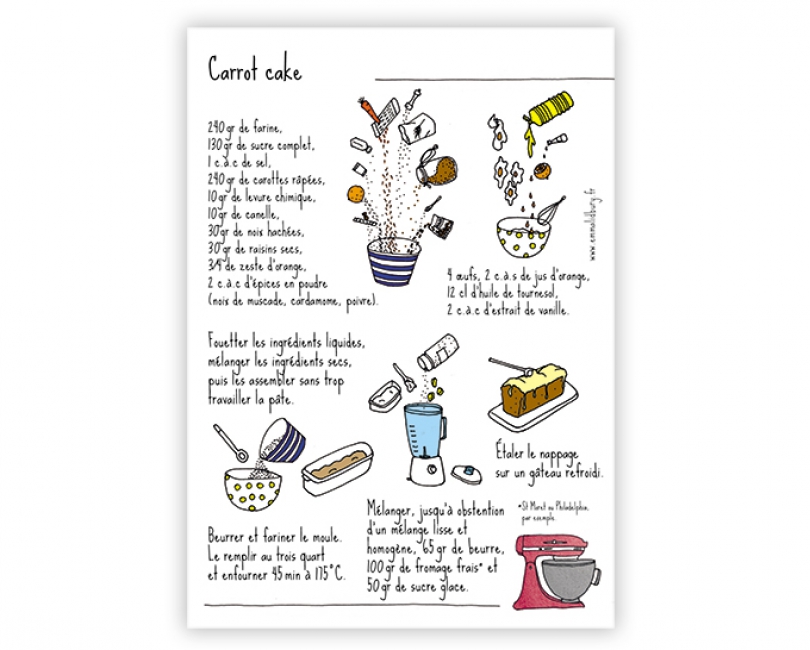 Carrot cake
240 gr de farine,
130 gr de sucre complet,
1 c.à.c de sel,
240 gr de carottes râpées,
10 gr de levure chimique,
10 gr de canelle,
30 gr de noix hachées,
30 gr de raisins secs,
3/4 de zeste d'orange,
2 c.à.c d'épices en poudre
(noix de muscade, cardamome, poivre).
www.emmalidbury.fr
4 œufs, 2 c.à.s de jus d'orange,
12 cl d'huile de tournesol,
2 c.à.c d'extrait de vanille.
Fouetter les ingrédients liquides,
mélanger les ingrédients secs,
puis les assembler sans trop
travailler la pâte.
Beurrer et fariner le moule.
Le remplir au trois quart
et enfourner 45 min à 175°C.
Mélanger, jusqu'à obstention
d'un mélange lisse et
homogène, 65 gr de beurre,
100 gr de fromage frais* et
50 gr de sucre glace.
Étaler le nappage
sur un gâteau refroidi.
*St Moret ou Philadelphia,
par exemple.